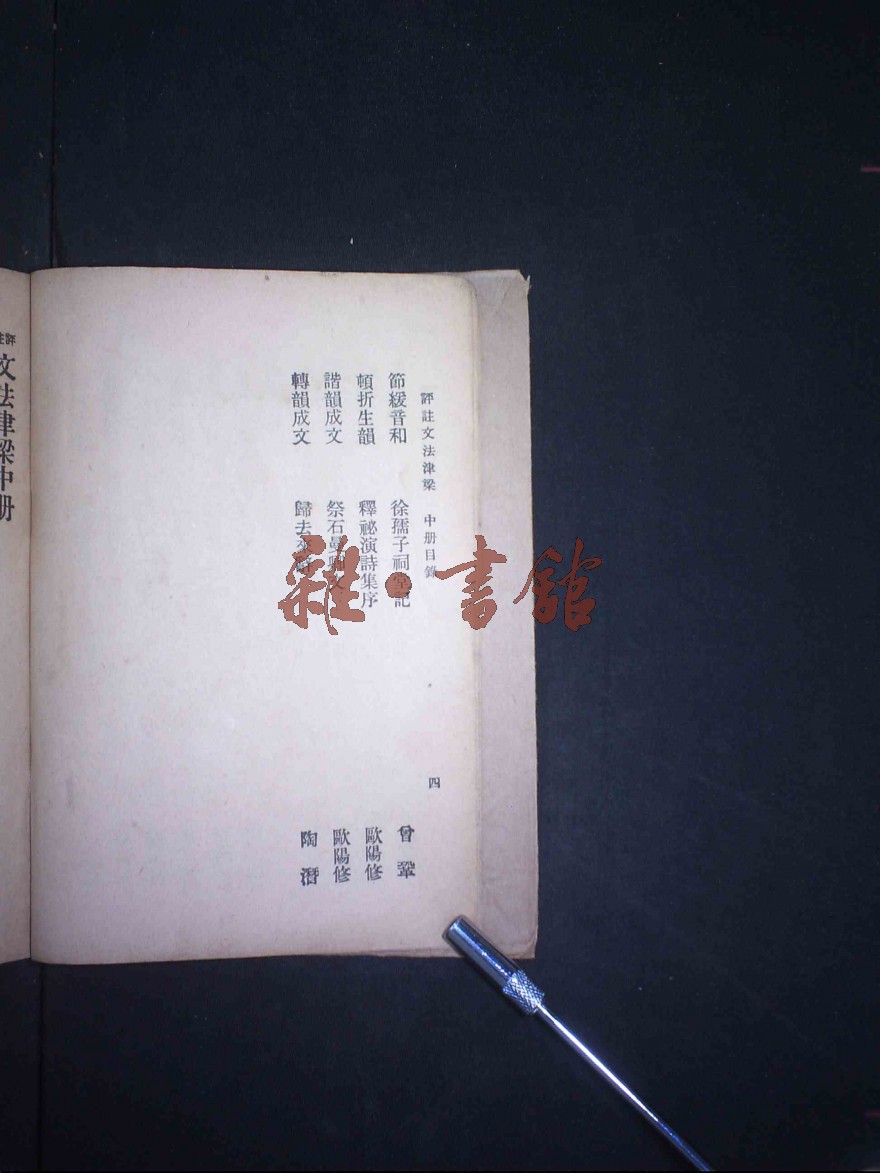 評註文法津梁 中册目錄 四
節緩音和 徐孺子祠堂記 曾鞏
頓折生韻 釋祕演詩集序 歐陽修
諧韻成文 祭石曼卿文 歐陽修
轉韻成文 歸去來辭 陶潛
評註文法津梁中册
雜·書館